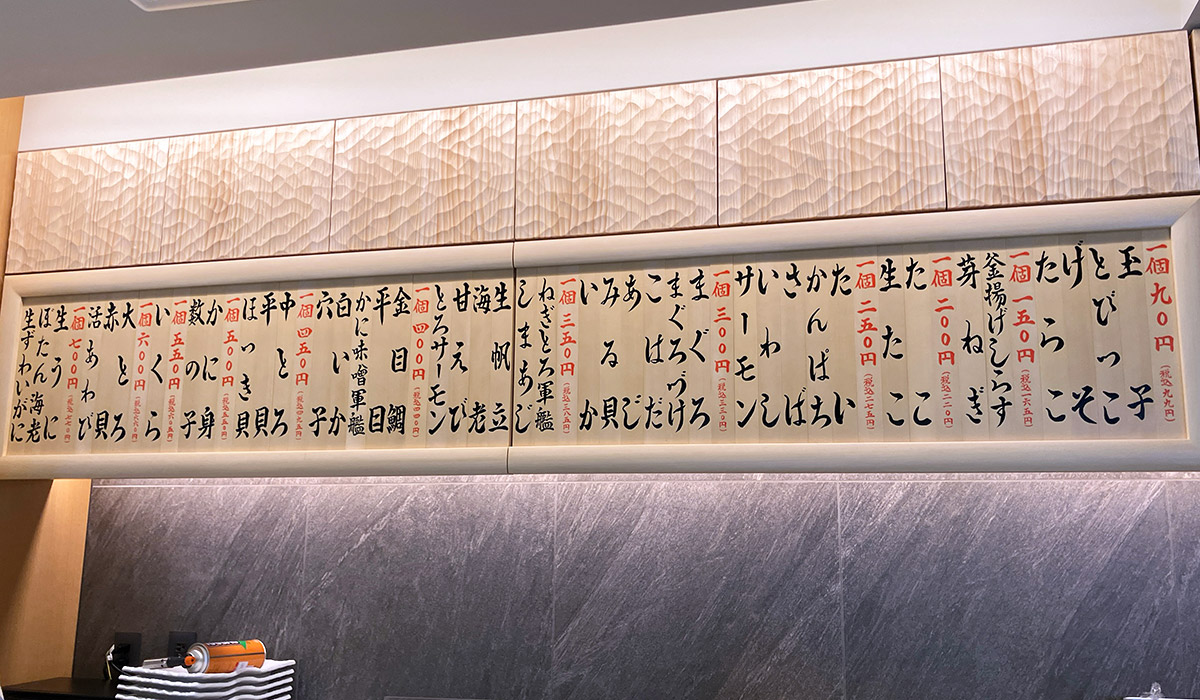 一個 九〇円(税込九九円)
玉子
とびっこ
げそ
たらこ
一個 一五〇円(税込一六五円)
釜揚げしらす
芽ねぎ
一個 二〇〇円(税込二二〇円)
たこ
生たこ
一個 二五〇円(税込二七五円)
たい
かんぱち
さば
いわし
サーモン
一個 三〇〇円(税込三三〇円)
まぐろ
まぐろづけ
こはだ
あじ
みる貝
いか
一個 三五〇円(税込三八五円)
ねぎとろ軍艦
しまあじ
生帆立
海老
甘えび
とろサーモン
一個 四〇〇円(税込四四〇円)
金目鯛
平目
かに味噌軍艦
白いか
穴子
一個 四五〇円(税込四九五円)
中とろ
平貝
ほっき貝
一個 五〇〇円(税込五五〇円)
かに身
数の子
一個 五五〇円(税込六〇五円)
いくら
一個 六〇〇円(税込六六〇円)
大とろ
赤貝
活あわび
一個 七〇〇円(税込七七〇円)
生うに
ぼたん海老
生ずわいがに